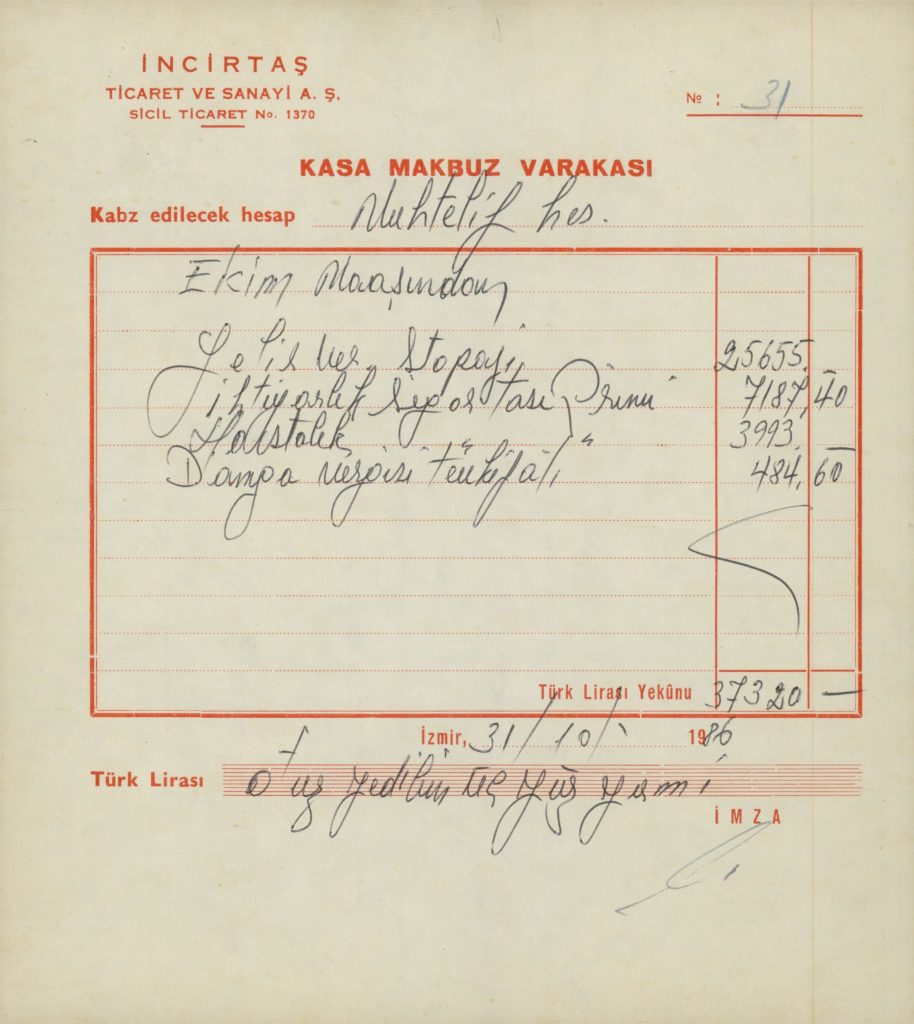 İNCİRTAŞ
TİCARET VE SANAYİ A. Ş.
SİCİL TİCARET No. 1370
№ : 31
KASA MAKBUZ VARAKASI
Kabz edilecek hesap Muhtelif hes.
Ekim Maaşından
Gelir Ver. Stopajı 25655.
İhtiyarlık Sigortası Primi 7187,40
Hastalık " " 3993
Damga Vergisi tevkifatı 484,60
Türk Lirası Yekûnu 37320 —
İzmir, 31/10/1986
Türk Lirası Otuz yedibin üç yüz yirmi
İMZA